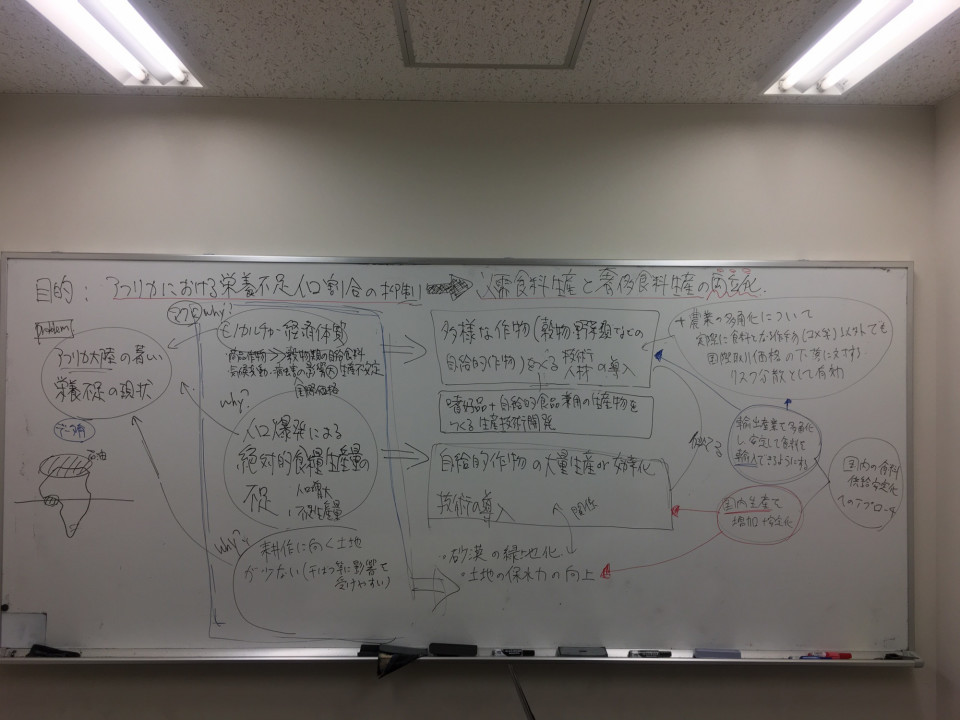 目的: アフリカにおける栄養不足人口割合の抑制
必需食料生産と奢侈食料生産の両立化.
problem
アフリカ大陸の著しい
栄養不足の現状
データ有
石油
why?
モノカルチャー経済体質
商品作物>>穀物類の自給食料
気候変動・病虫害の影響因 生産不安定
国際価格
why?
人口爆発による
絶対的食糧生産量の
不足
人口増大
why?
耕作に向く土地
が少ない(干ばつ等に影響で
受けやすい)
多様な作物(穀物 野菜類などの
自給的作物)をつくる 技術 人材 の導入
嗜好品+自給的食品兼用の生産物を
つくる生産技術開発
自給的作物の大量生産or効率化
技術の導入
関係
・砂漠の緑地化
・土地の保水力の向上
+農業の多角化について
実際に食料となる作物(コメ等)以外でも
国際取引価格の下落に対する
リスク分散として有効
似てる
輸出産業で多角化
し、安定して食料を
輸入できるようにする
国内生産で
増加+安定化
国内の食料
供給安定化
へのアプローチ